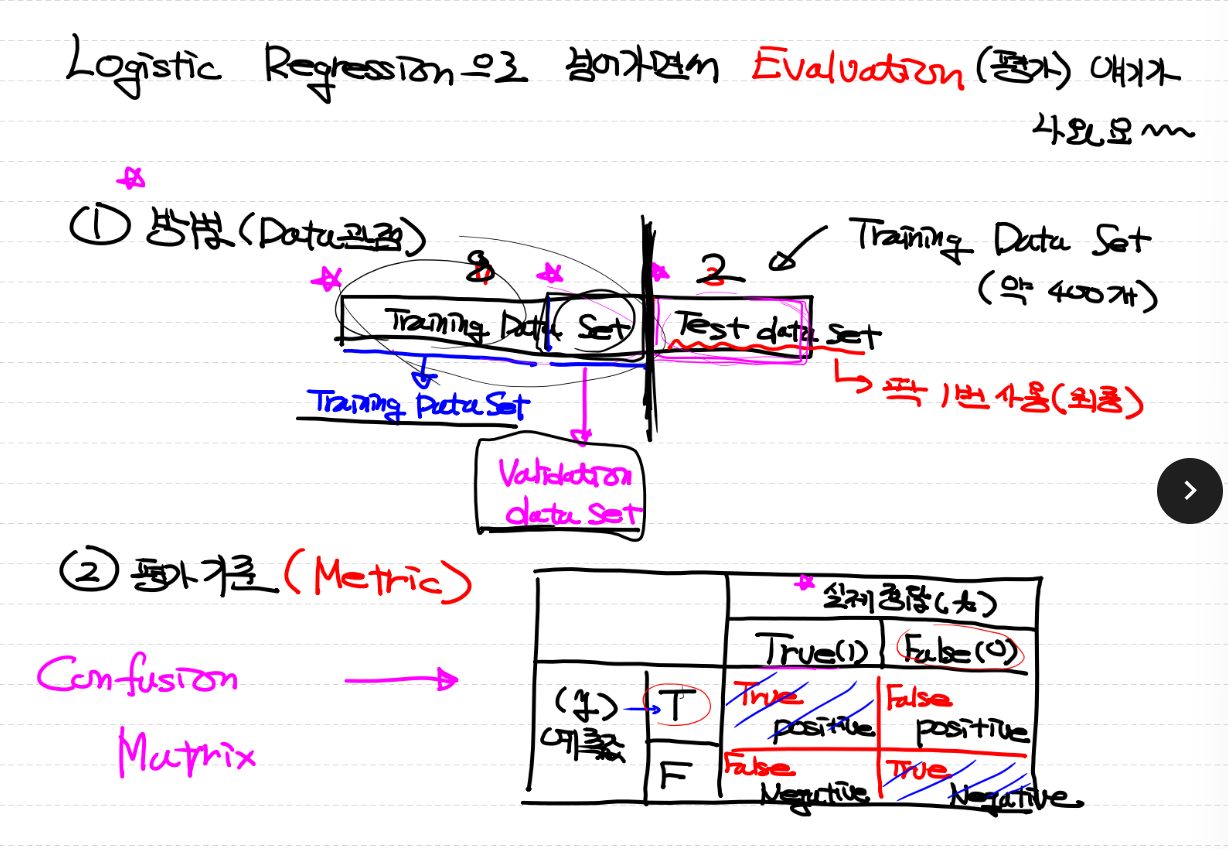 Logistic Regression으로 넘어가면서 Evaluation (평가) 얘기가
나와요~~
① 방법 (Data관점)
8
2
Training Data Set
(약 400개)
Training Data Set
Test data set
Training Data Set
→ 딱 1번 사용(최종)
Validation
data set
② 평가기준 (Metric)
Confusion
Matrix
실제정답( )
True(1)
False(0)
예측
T
True positive
False positive
F
False Negative
True Negative